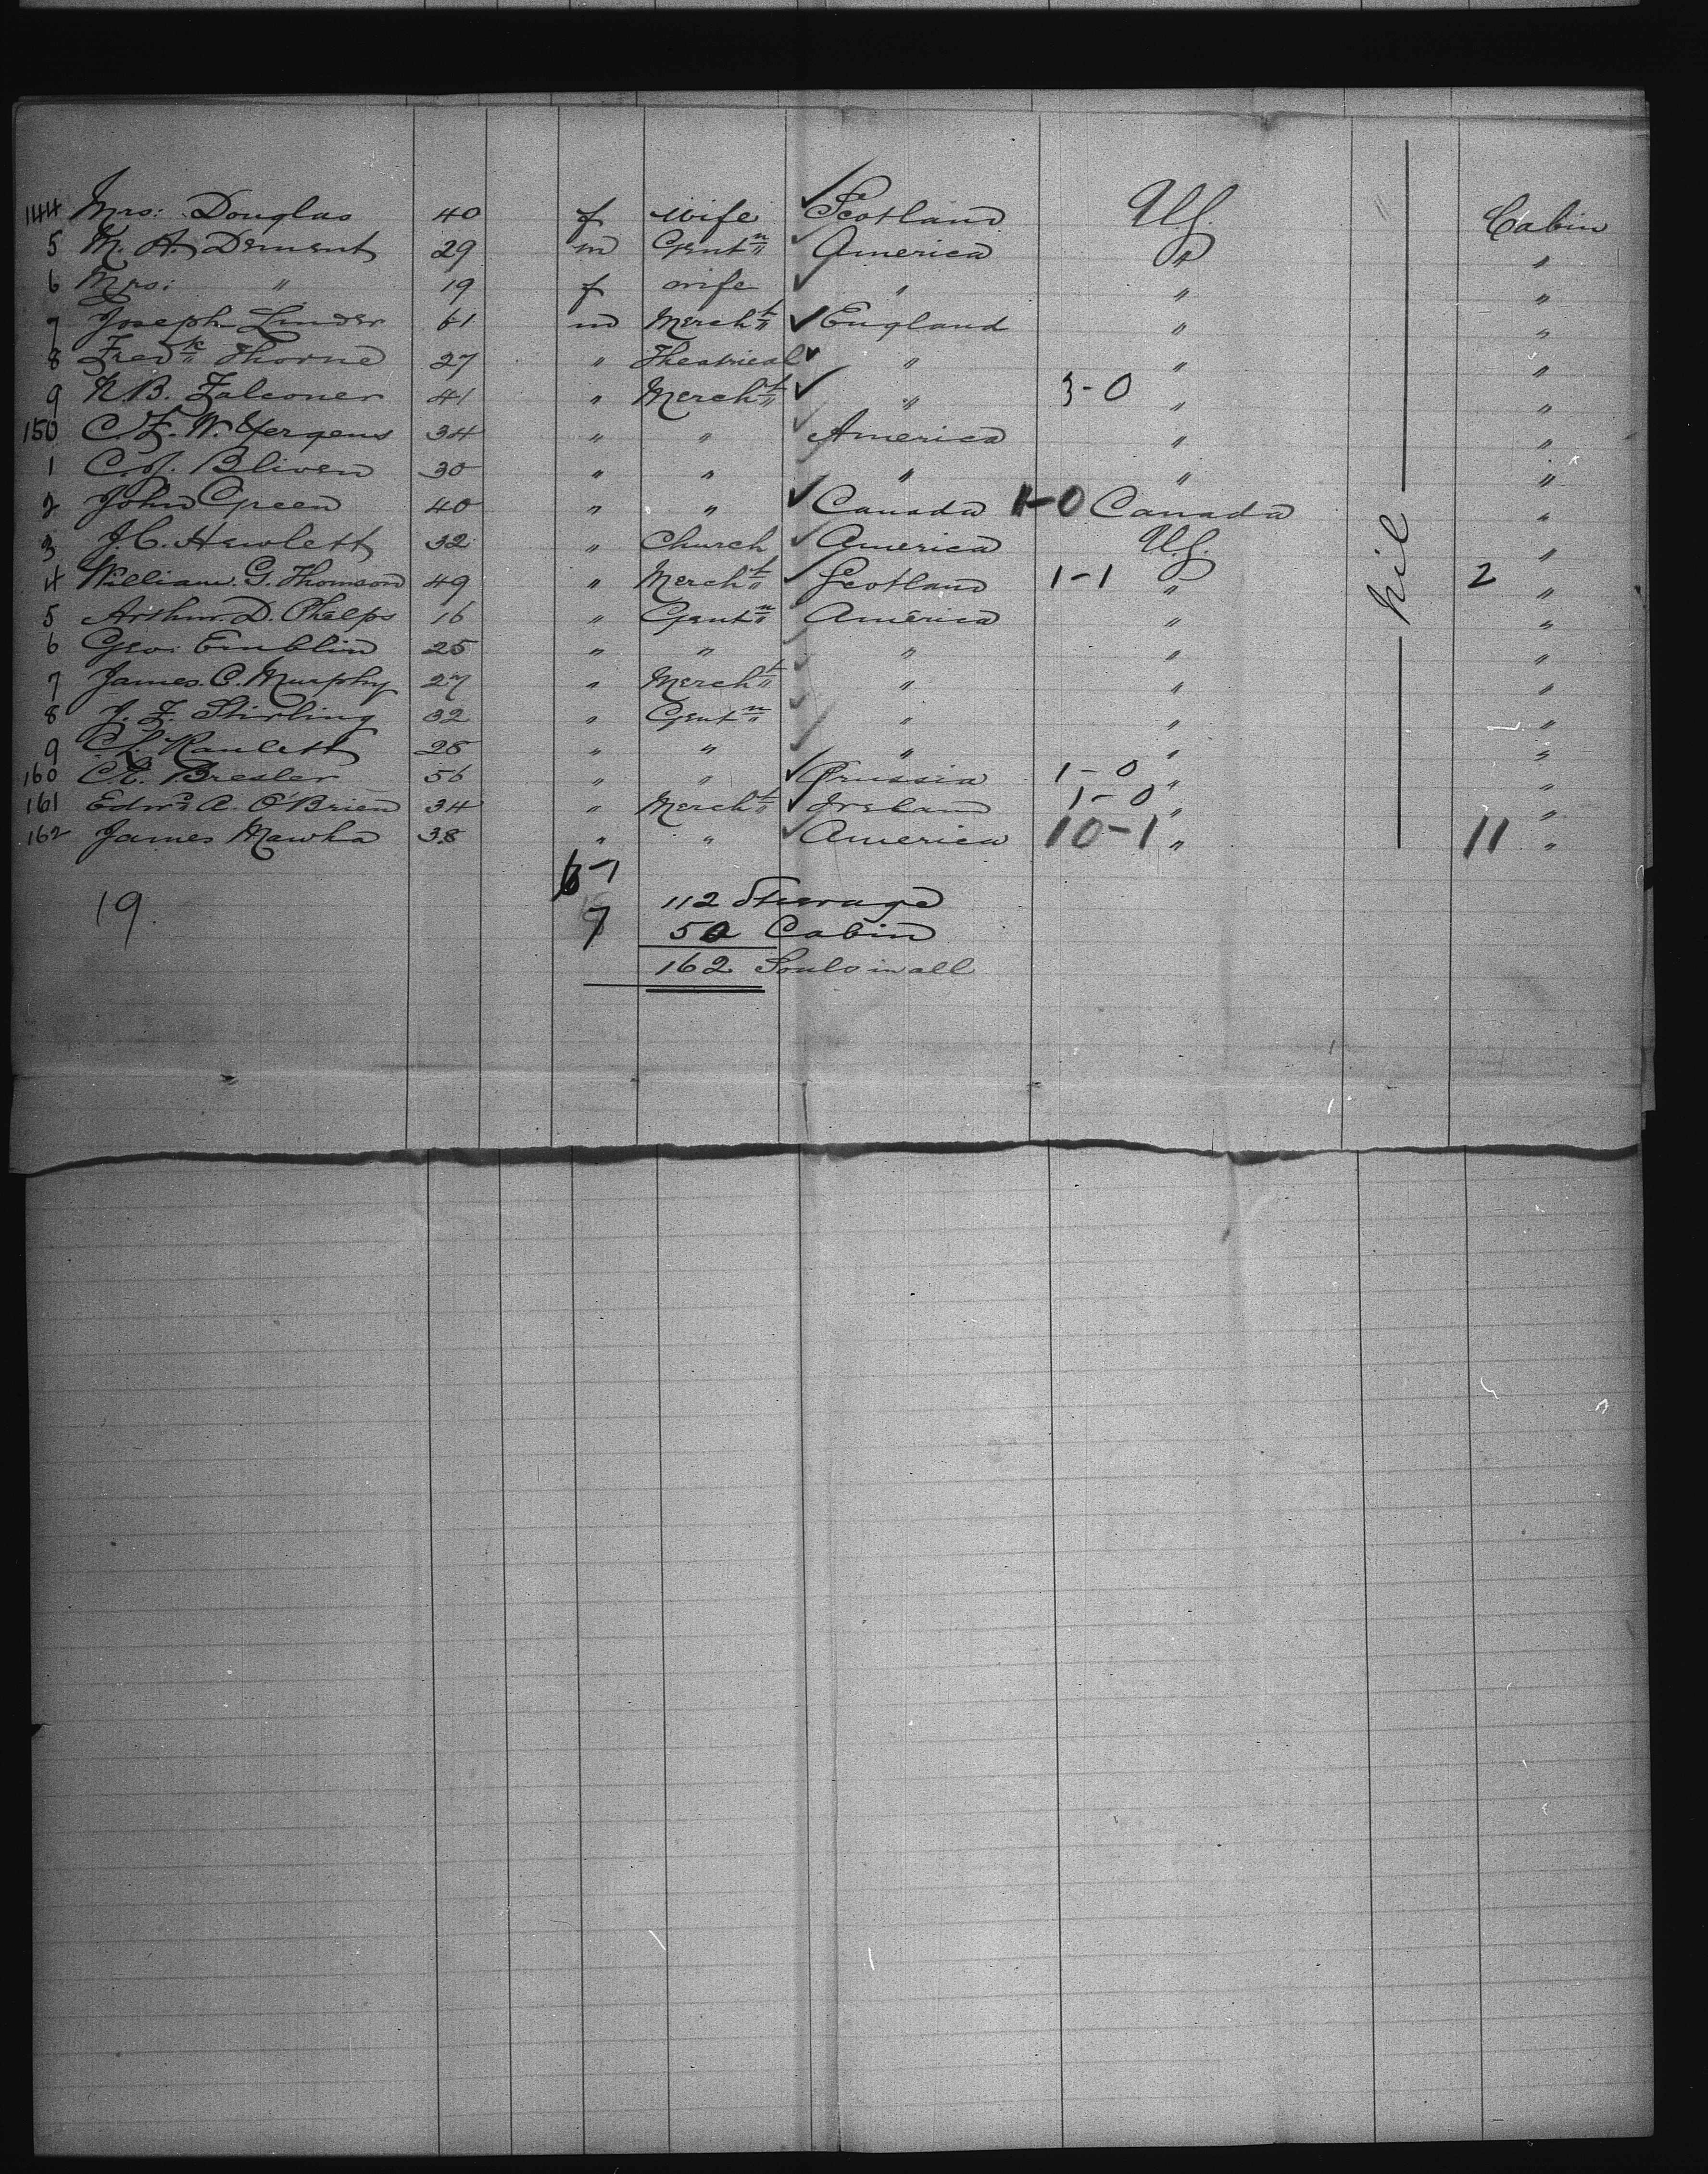 144 Mrs: Douglas 40 f wife Scotland U.S. Cabin
5 M. A. Dement 29 m Gentn America " "
6 Mrs: " 19 f wife " " "
7 Joseph Linder 61 m Mercht England " "
8 Fredk Thorne 27 " Theatrical " " "
9 N.B. Falconer 41 " Mercht " 3-0 " "
150 C.F.W. Yergens 34 " " America " "
1 C.J. Bliven 30 " " " " "
2 John Green 40 " " Canada 1-0 Canada "
3 J.C. Hewlett 32 " Church America U.S. "
4 William. G. Thomson 49 " Mercht Scotland 1-1 " 2 "
5 Arthur. D. Phelps 16 " Gentn America " "
6 Geo: Emblin 25 " " " " "
7 James. C. Murphy 27 " Mercht " " "
8 J. F. Stirling 32 " Gentn " " "
9 C.S. Ranlett 28 " " " " "
160 C.E. Bresler 56 " " Prussia 1-0 " "
161 Edwd A. O'Brien 34 " Mercht Ireland 1-0 " "
162 James Mawha 38 " " America 10-1 " 11 "
nil
6-1
19. 7 112 Steerage
50 Cabin
162 Souls in all